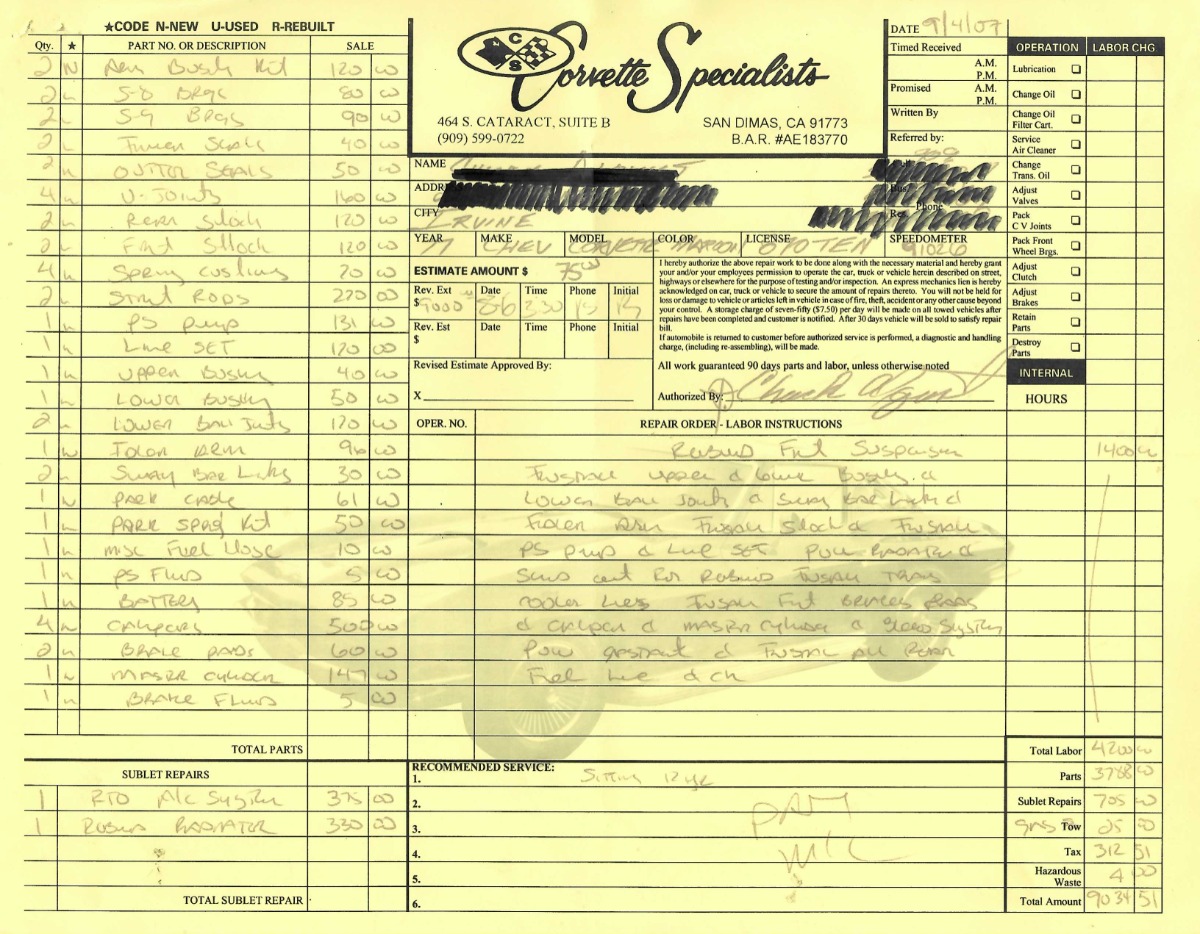 ★CODE N-NEW U-USED R-REBUILT
Qty. ★ PART NO. OR DESCRIPTION SALE
2 N Arm Bush Kit 120 00
2 S-8 BRGS 80 00
2 S-9 BRGS 90 00
2 Inner Seals 40 00
2 OUTTER SEALS 50 00
4 U-Joints 160 00
2 Rear Shock 120 00
2 Frnt Shock 120 00
4 Spring cushing 20 00
2 Strut RODS 270 00
1 PS pump 131 00
1 Line SET 170 00
1 UPPER Bushing 40 00
1 LOWER Bushing 50 00
2 LOWER Ball Joints 120 00
1 N Idler ARM 96 00
2 Sway Bar Links 30 00
1 N PARK CABLE 61 00
1 PARK SPRNG Kit 50 00
1 misc Fuel Hose 10 00
1 PS Fluid 5 00
1 BATTERY 85 00
4 CALIPERS 500 00
2 BRAKE PADS 60 00
1 MASTER CYLINDER 147 00
1 BRAKE FLUID 5 00
TOTAL PARTS
SUBLET REPAIRS
1 RTO A/C System 375 00
1 Rebuild RADIATOR 330 00
TOTAL SUBLET REPAIR
CS
Corvette Specialists
464 S. CATARACT, SUITE B SAN DIMAS, CA 91773
(909) 599-0722 B.A.R. #AE183770
DATE 9/4/07
Timed Received A.M. P.M.
Promised A.M. P.M.
Written By
Referred by:
NAME
ADDR
CITY IRVINE
Bus.
Phone
Res.
YEAR 77 MAKE CHEV MODEL CORVETTE COLOR MAROON LICENSE SPEEDOMETER 91026
ESTIMATE AMOUNT $ 75 00
Rev. Ext $ 9000 Date 8-6 Time 3:30 Phone Initial
Rev. Est $ Date Time Phone Initial
Revised Estimate Approved By:
X
I hereby authorize the above repair work to be done along with the necessary material and hereby grant
your and/or your employees permission to operate the car, truck or vehicle herein described on street,
highways or elsewhere for the purpose of testing and/or inspection. An express mechanics lien is hereby
acknowledged on car, truck or vehicle to secure the amount of repairs thereto. You will not be held for
loss or damage to vehicle or articles left in vehicle in case of fire, theft, accident or any other cause beyond
your control. A storage charge of seven-fifty ($7.50) per day will be made on all towed vehicles after
repairs have been completed and customer is notified. After 30 days vehicle will be sold to satisfy repair
bill.
If automobile is returned to customer before authorized service is performed, a diagnostic and handling
charge, (including re-assembling), will be made.
All work guaranteed 90 days parts and labor, unless otherwise noted
Authorized By:
OPERATION LABOR CHG.
Lubrication
Change Oil
Change Oil Filter Cart.
Service Air Cleaner
Change Trans. Oil
Adjust Valves
Pack C V Joints
Pack Front Wheel Brgs.
Adjust Clutch
Adjust Brakes
Retain Parts
Destroy Parts
INTERNAL
HOURS
OPER. NO. REPAIR ORDER - LABOR INSTRUCTIONS
Rebuild Frnt Suspension 1400 00
Install upper & lower Bushing &
LOWER Ball Joints & Sway Bar Links &
Idler Arm Install Shock & Install
PS pump & Line SET Pull Radiator &
Send out for Rebuild Install Trans
cooler lines Install Frnt BRAKES PADS
& Caliper & MASTER Cylinder & Bleed System
Pull & Install all Rear
Fuel Line & ck
RECOMMENDED SERVICE:
1. Sitting 12 yr
2.
3.
4.
5.
6.
PAM
M/C
Total Labor 4200 00
Parts 3788 00
Sublet Repairs 705 00
gas Tow 25 00
Tax 312 51
Hazardous Waste 4 00
Total Amount 9034 51